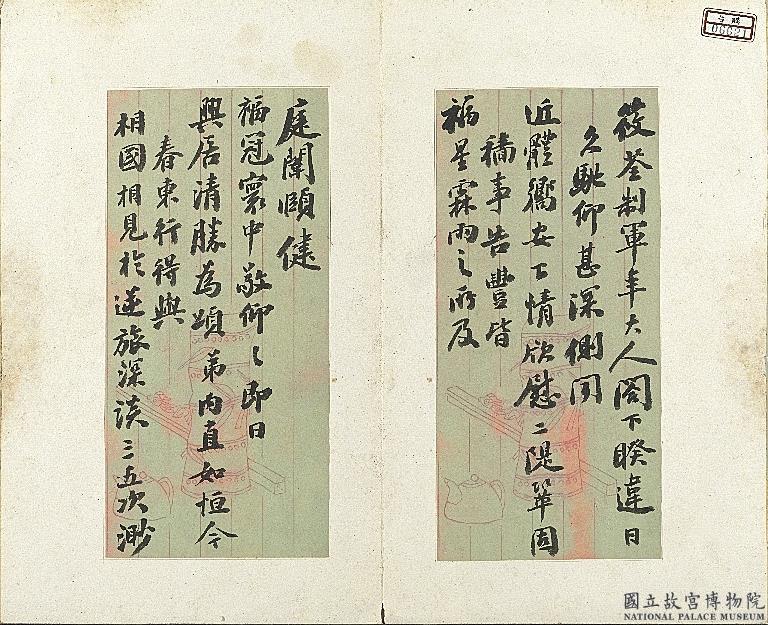 筱荃制軍年大人閣下睽違日
久馳仰甚深側聞
近體嚮安下情欣慰二隄鞏固
穡事告豐皆
福星霖雨之所及
庭闈頤健
福冠寰中敬仰之即日
興居清勝為頌弟內直如恒今
春東行得與
相國相見於逆旅深談三五次渺
00621
國立故宮博物院
NATIONAL PALACE MUSEUM